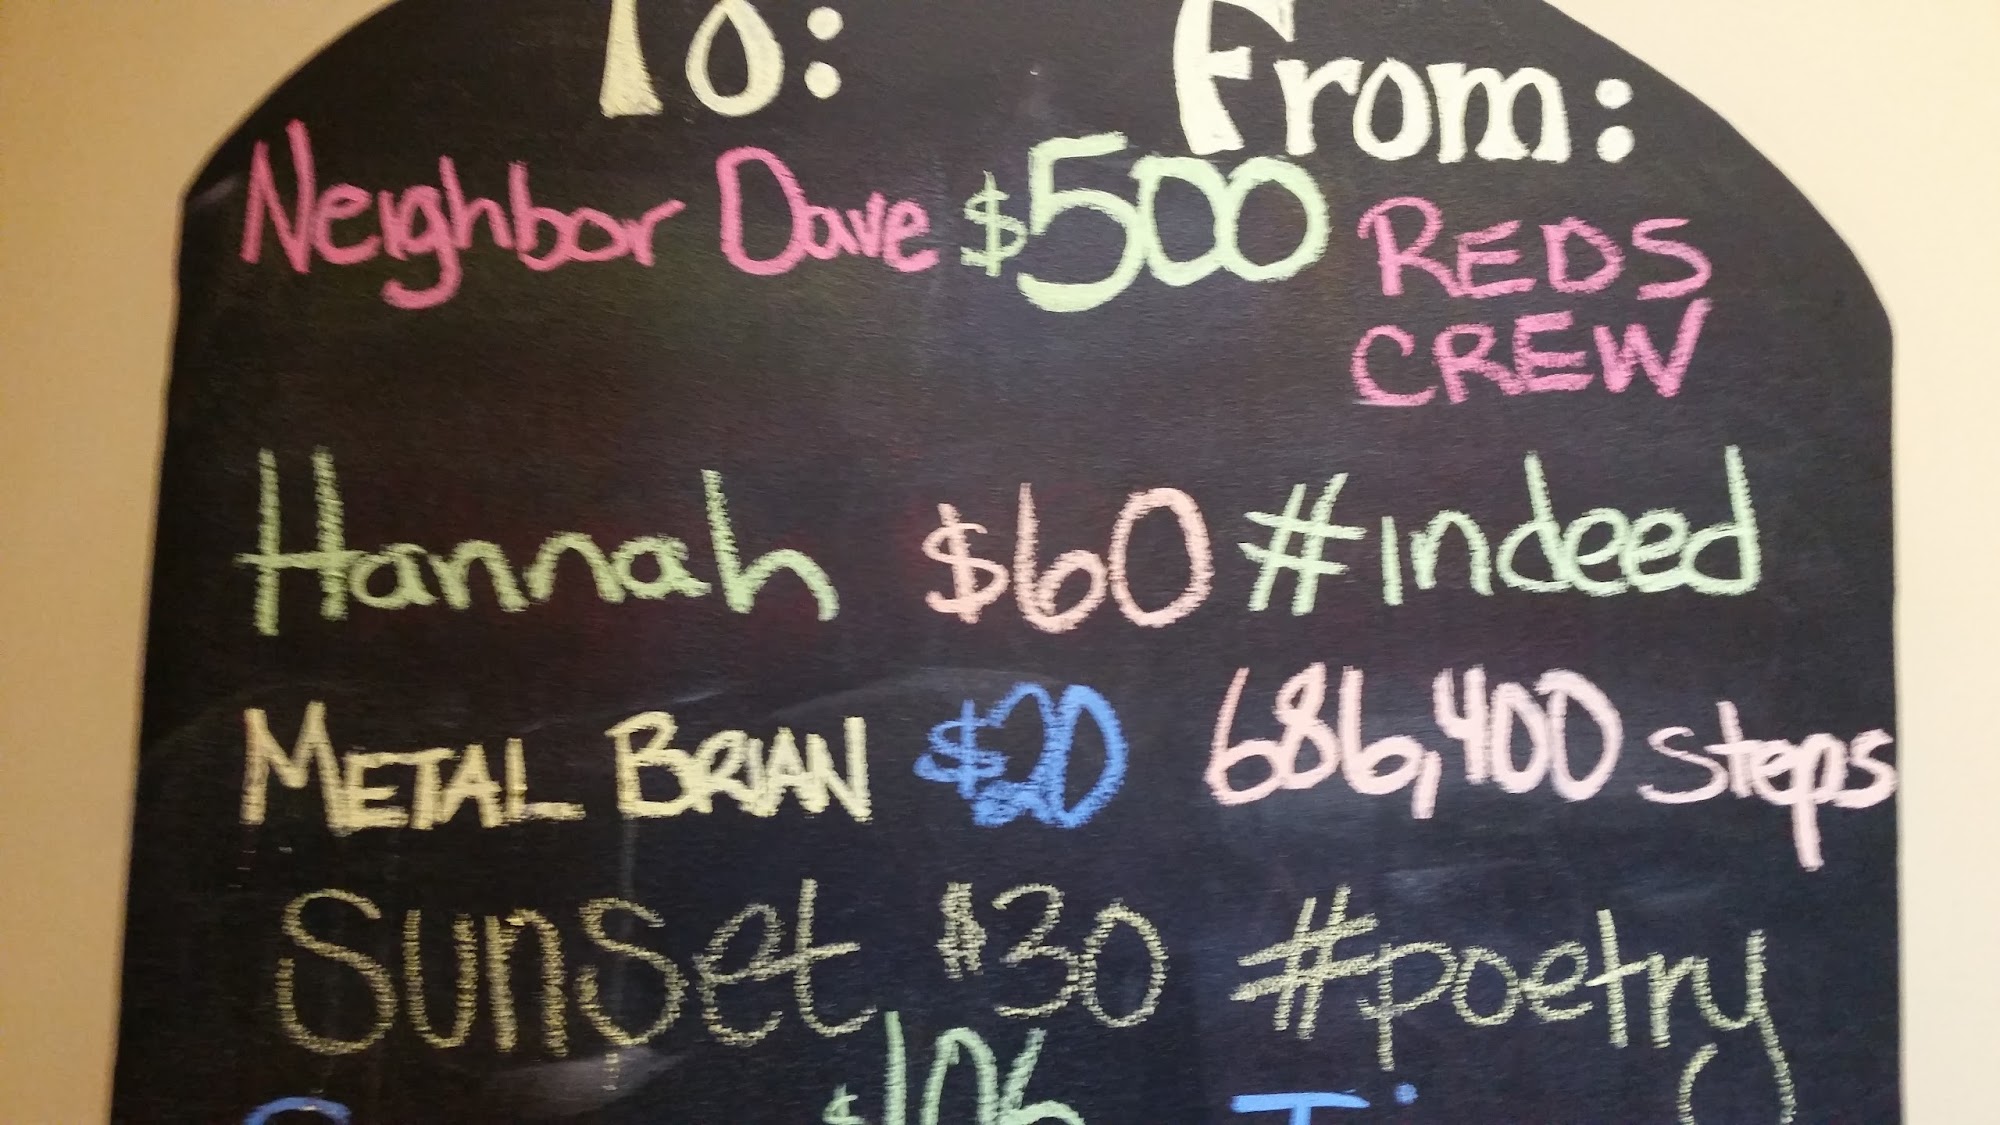 To: From:
Neighbor Dave $500 REDS
CREW
Hannah $60 #indeed
METAL BRIAN $20 686,400 steps
Sunset $30 #poetry